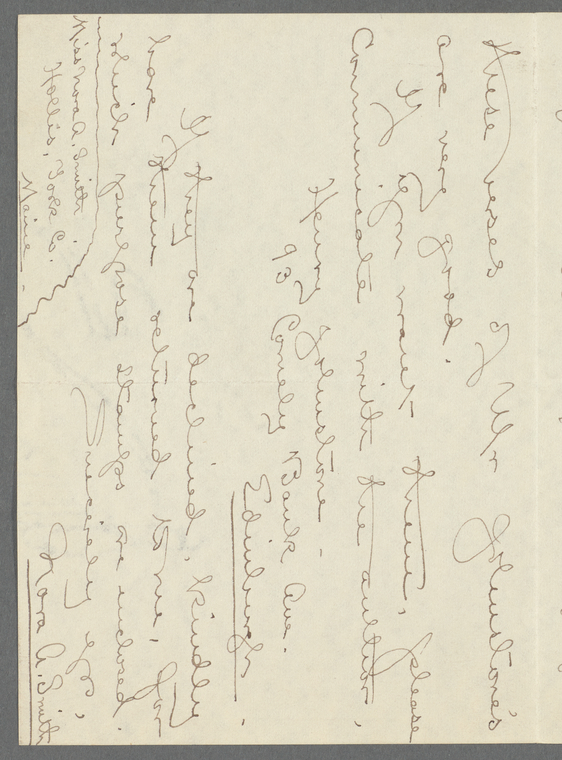 these verses of Mr Johnstone's
are very good.
If you want them, please
Communicate with the author,
Henry Johnstone -
93 Comely Bank Ave.
Edinburgh.
If they are declined, kindly
have them returned to me, for
which purpose stamps are enclosed.
Sincerely yrs,
Nora A. Smith
Miss Nora A. Smith
Hollis, York Co.
Maine -